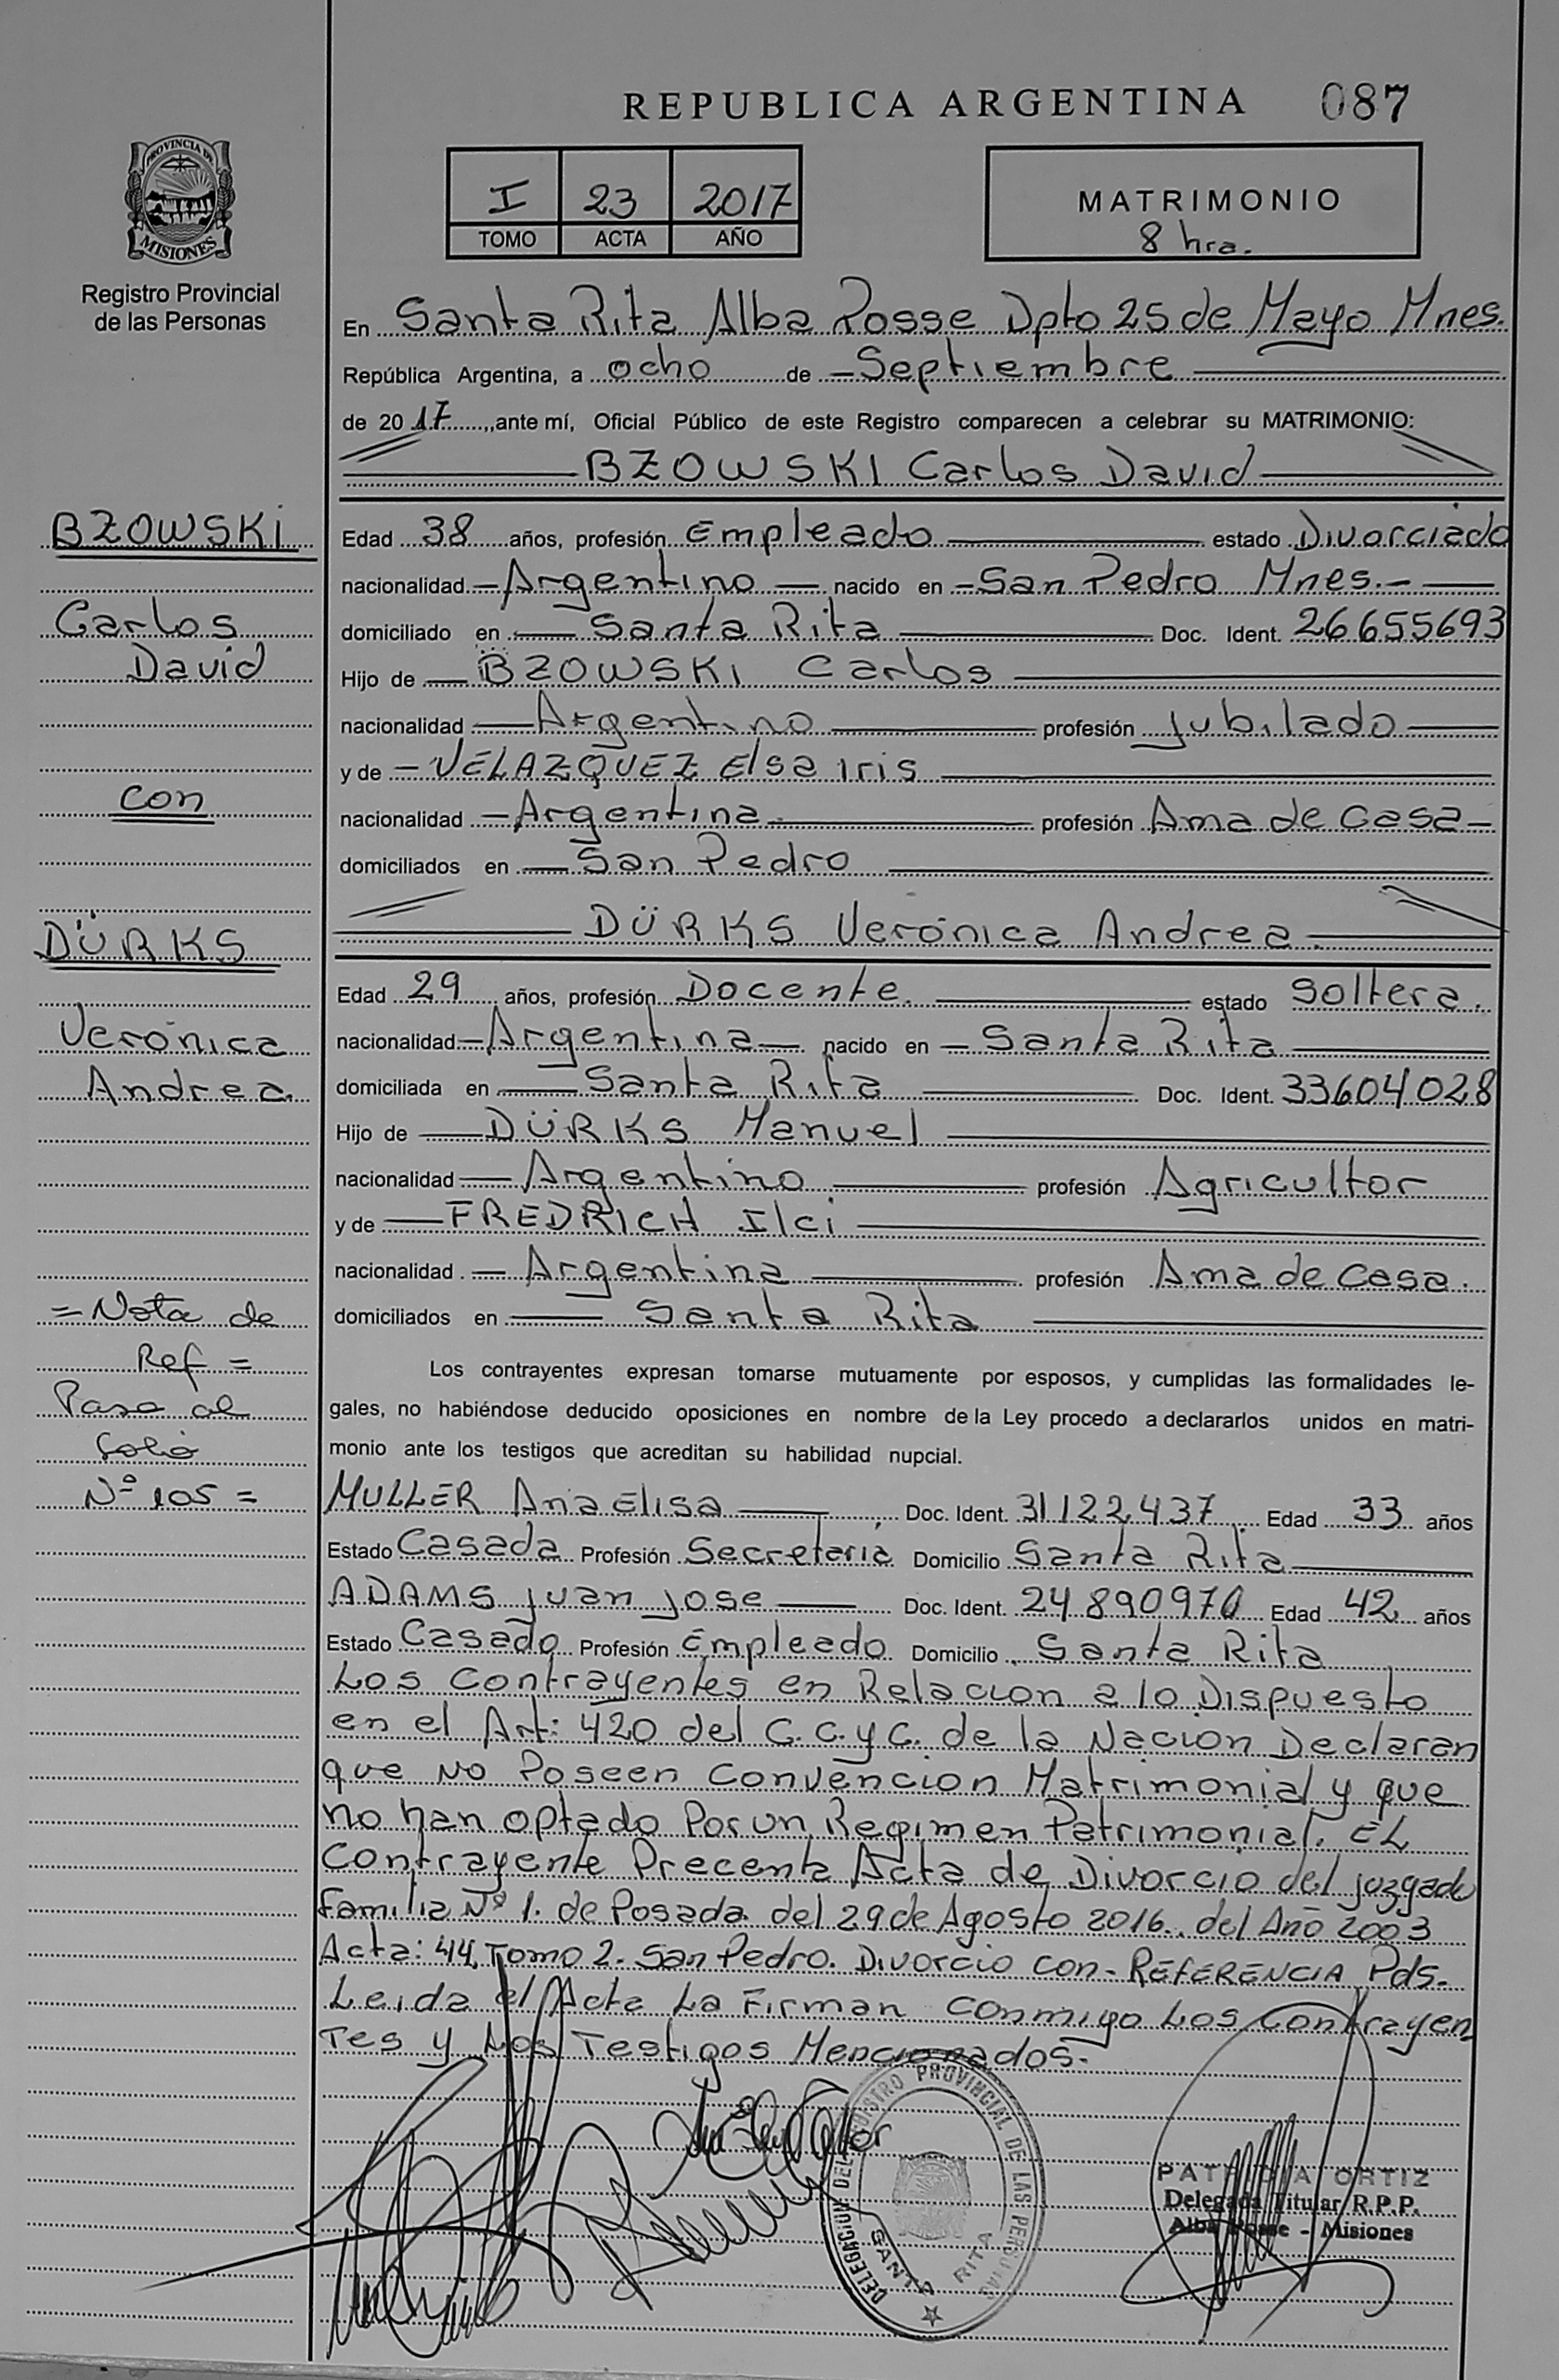 REPUBLICA ARGENTINA 087
PROVINCIA DE
MISIONES
Registro Provincial
de las Personas
I 23 2017
TOMO ACTA AÑO
MATRIMONIO
8 hra.
En Santa Rita Alba Posse Dpto 25 de Mayo Mnes.
República Argentina, a ocho de Septiembre
de 2017, ante mí, Oficial Público de este Registro comparecen a celebrar su MATRIMONIO:
BZOWSKI Carlos David
BZOWSKI
Carlos
David
con
DÜRKS
Verónica
Andrea
= Nota de
Ref =
Pasa al
folio
Nº 105 =
Edad 38 años, profesión Empleado estado Divorciado
nacionalidad Argentino nacido en San Pedro Mnes.
domiciliado en Santa Rita Doc. Ident. 26655693
Hijo de BZOWSKI Carlos
nacionalidad Argentino profesión jubilado
y de VELAZQUEZ Elsa Iris
nacionalidad Argentina. profesión Ama de Casa
domiciliados en San Pedro
DÜRKS Verónica Andrea.
Edad 29 años, profesión Docente. estado Soltera.
nacionalidad Argentina nacido en Santa Rita
domiciliada en Santa Rita Doc. Ident. 33604028
Hijo de DÜRKS Manuel
nacionalidad Argentino profesión Agricultor
y de FREDRICH Ilci
nacionalidad Argentina profesión Ama de Casa.
domiciliados en Santa Rita
Los contrayentes expresan tomarse mutuamente por esposos, y cumplidas las formalidades le-
gales, no habiéndose deducido oposiciones en nombre de la Ley procedo a declararlos unidos en matri-
monio ante los testigos que acreditan su habilidad nupcial.
MULLER Ana Elisa Doc. Ident. 31122437 Edad 33 años
Estado Casada Profesión Secretaria Domicilio Santa Rita
ADAMS Juan Jose Doc. Ident. 24890970 Edad 42 años
Estado Casado Profesión Empleado Domicilio Santa Rita
Los Contrayentes en Relacion a lo Dispuesto
en el Art: 420 del C.C.y C. de la Nacion Declaran
que No Poseen Convencion Matrimonial y que
no han optado Por un Regimen Patrimonial. EL
Contrayente Precenta Acta de Divorcio del juzgado
Familia Nº 1. de Posada del 29 de Agosto 2016. del Año 2003
Acta: 44 Tomo 2. San Pedro. Divorcio con - REFERENCIA Pds.
Leida el Acta La Firman conmigo Los Contrayen
Tes y Los Testigos Mencionados.
DELEGACION DEL REGISTRO PROVINCIAL DE LAS PERSONAS
SANTA RITA
PATRICIA ORTIZ
Delegada Titular R.P.P.
Alba Posse - Misiones